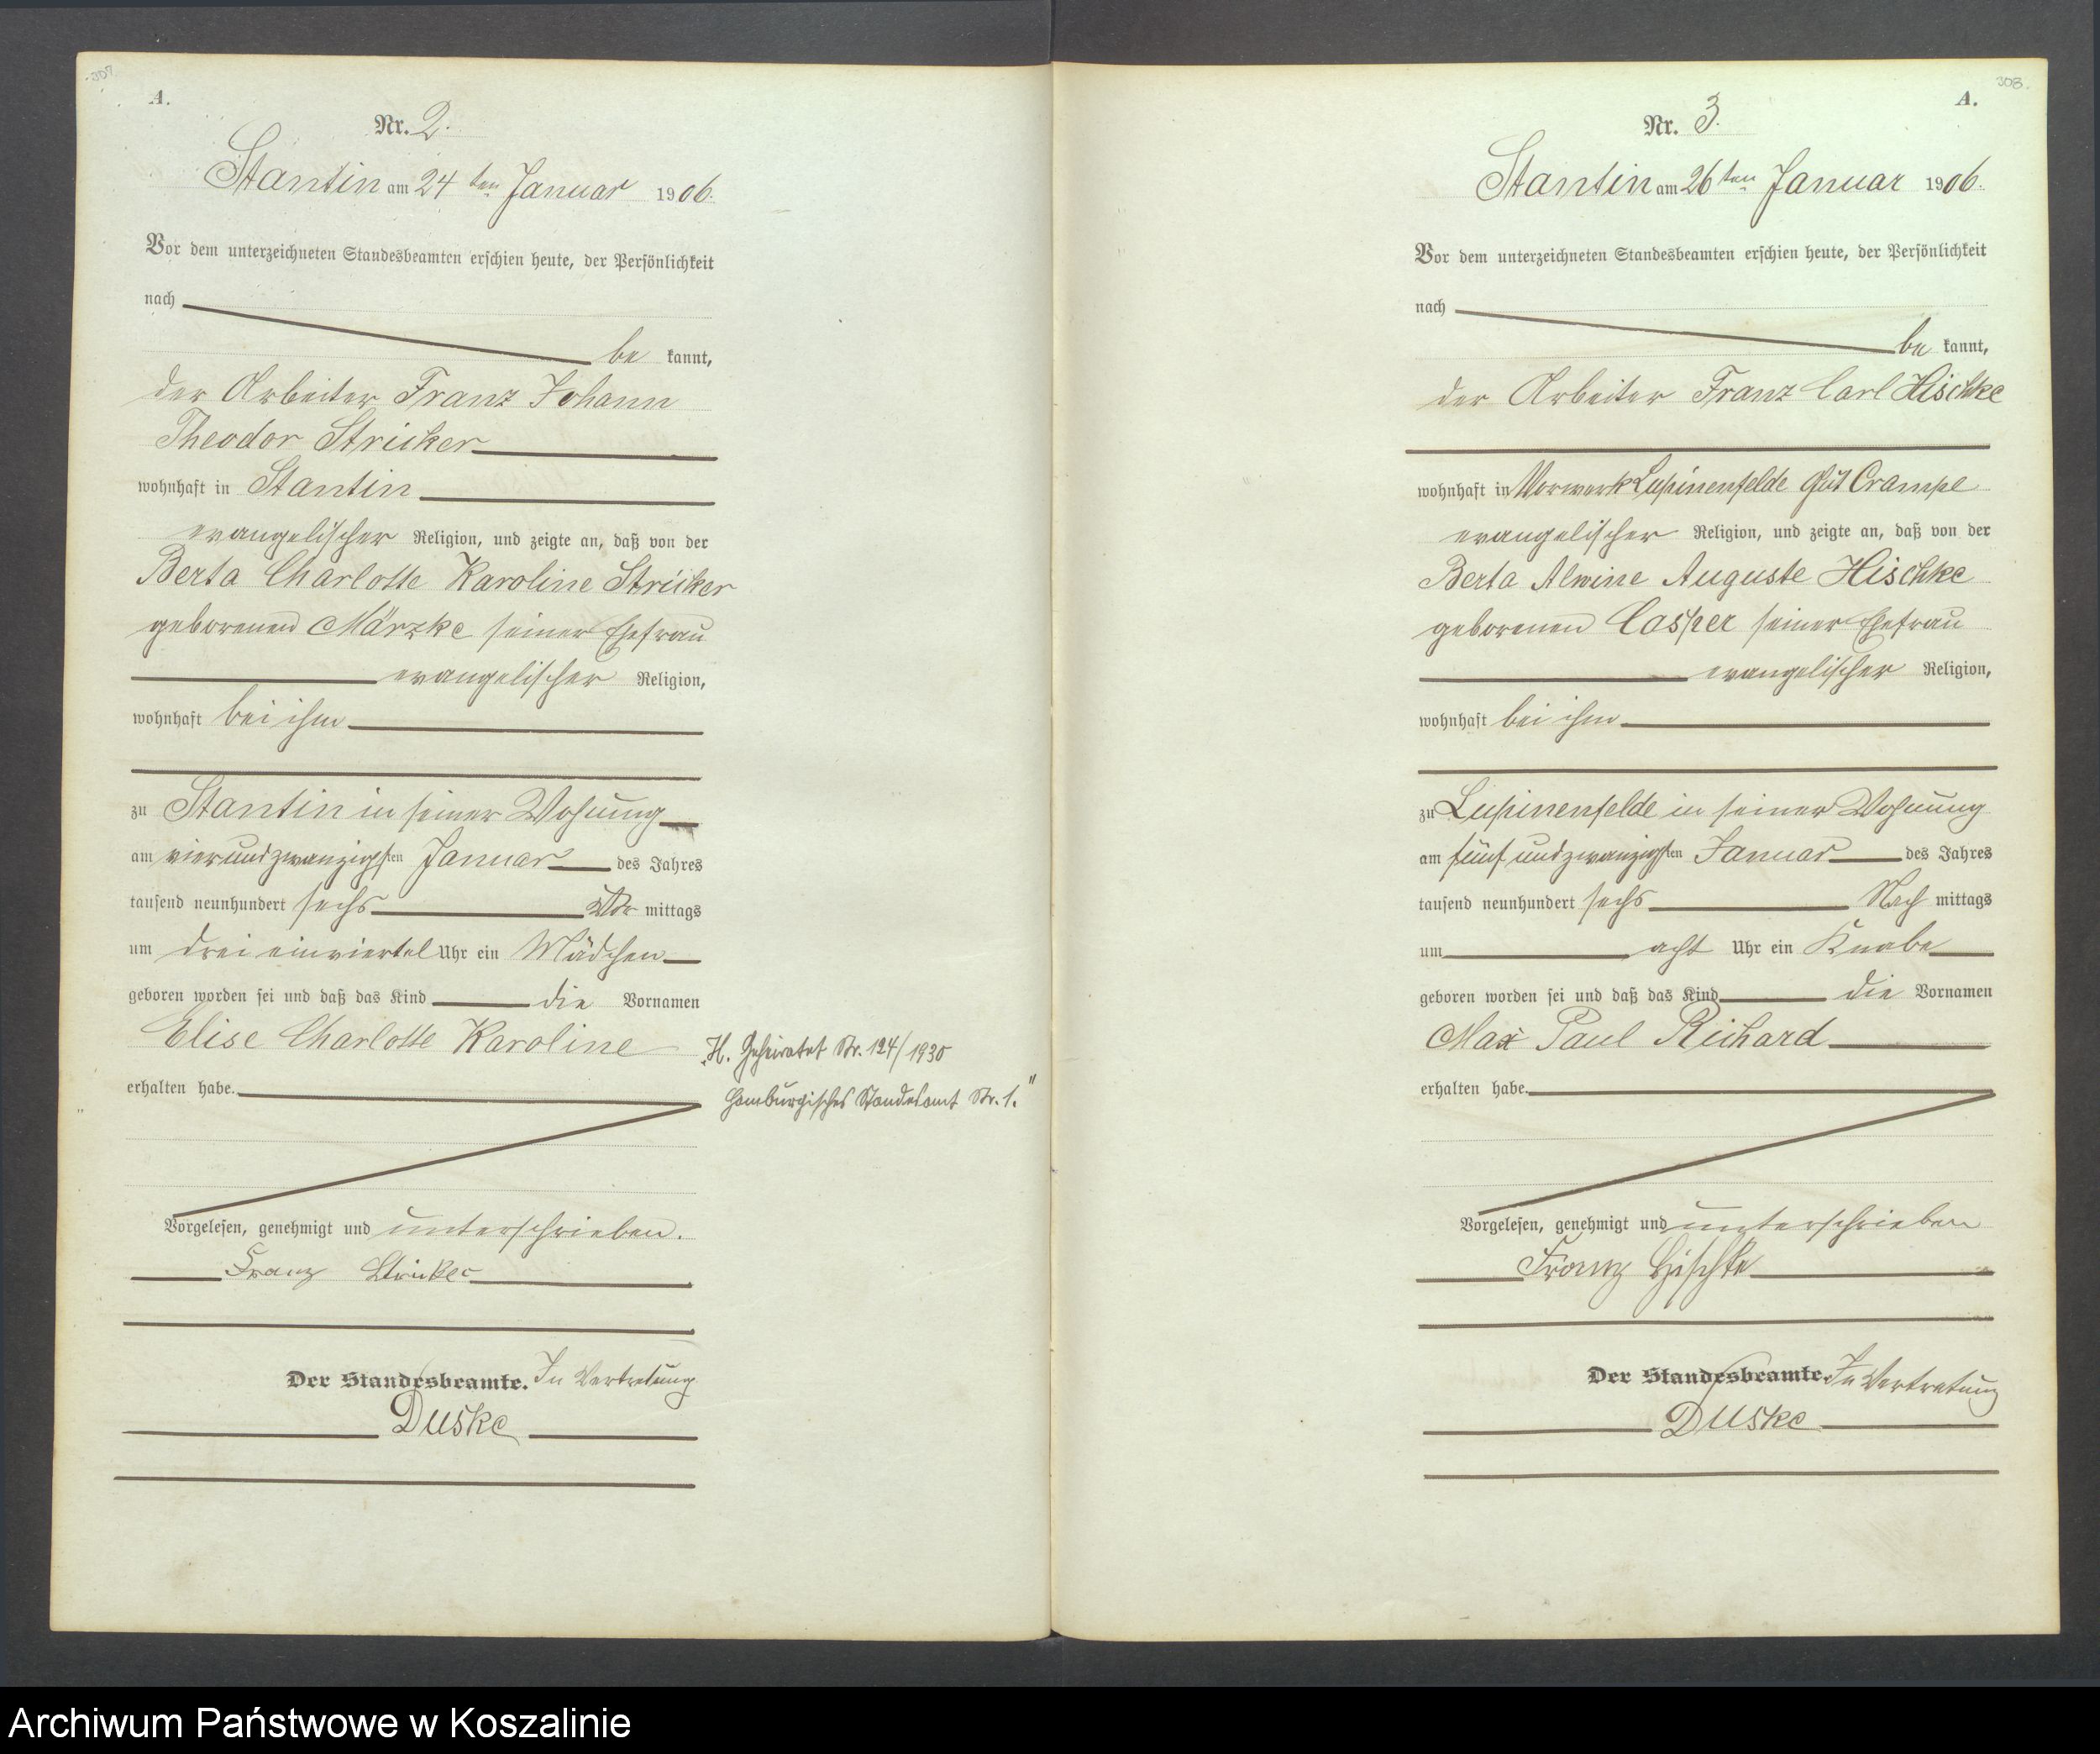 307.
A.
Nr. 2.
Stantin am 24 ten Januar 1906.
Vor dem unterzeichneten Standesbeamten erschien heute, der Persönlichkeit
nach
be kannt,
der Arbeiter Franz Johann
Theodor Stricker
wohnhaft in Stantin
evangelischer Religion, und zeigte an, daß von der
Berta Charlotte Karoline Stricker
geborenen Märzke seiner Ehefrau
evangelischer Religion,
wohnhaft bei ihm
zu Stantin in seiner Wohnung
am vierundzwanzigsten Januar des Jahres
tausend neunhundert sechs Vor mittags
um drei einviertel Uhr ein Mädchen
geboren worden sei und daß das Kind die Vornamen
Elise Charlotte Karoline
erhalten habe.
„H. Geheiratet Nr. 124/1930
Hamburgisches Standesamt Nr. 1."
Vorgelesen, genehmigt und unterschrieben.
Franz Stricker
Der Standesbeamte. In Vertretung
Duske
308.
A.
Nr. 3.
Stantin am 26 ten Januar 1906.
Vor dem unterzeichneten Standesbeamten erschien heute, der Persönlichkeit
nach
be kannt,
der Arbeiter Franz Carl Hischke
wohnhaft in Vorwerk Lupinenfelde Gut Crampe
evangelischer Religion, und zeigte an, daß von der
Berta Alwine Auguste Hischke
geborenen Casper seiner Ehefrau
evangelischer Religion,
wohnhaft bei ihm
zu Lupinenfelde in seiner Wohnung
am fünf undzwanzigsten Januar des Jahres
tausend neunhundert sechs Nach mittags
um acht Uhr ein Knabe
geboren worden sei und daß das Kind die Vornamen
Max Paul Richard
erhalten habe.
Vorgelesen, genehmigt und unterschrieben
Franz Hischke
Der Standesbeamte. In Vertretung
Duske
Archiwum Państwowe w Koszalinie